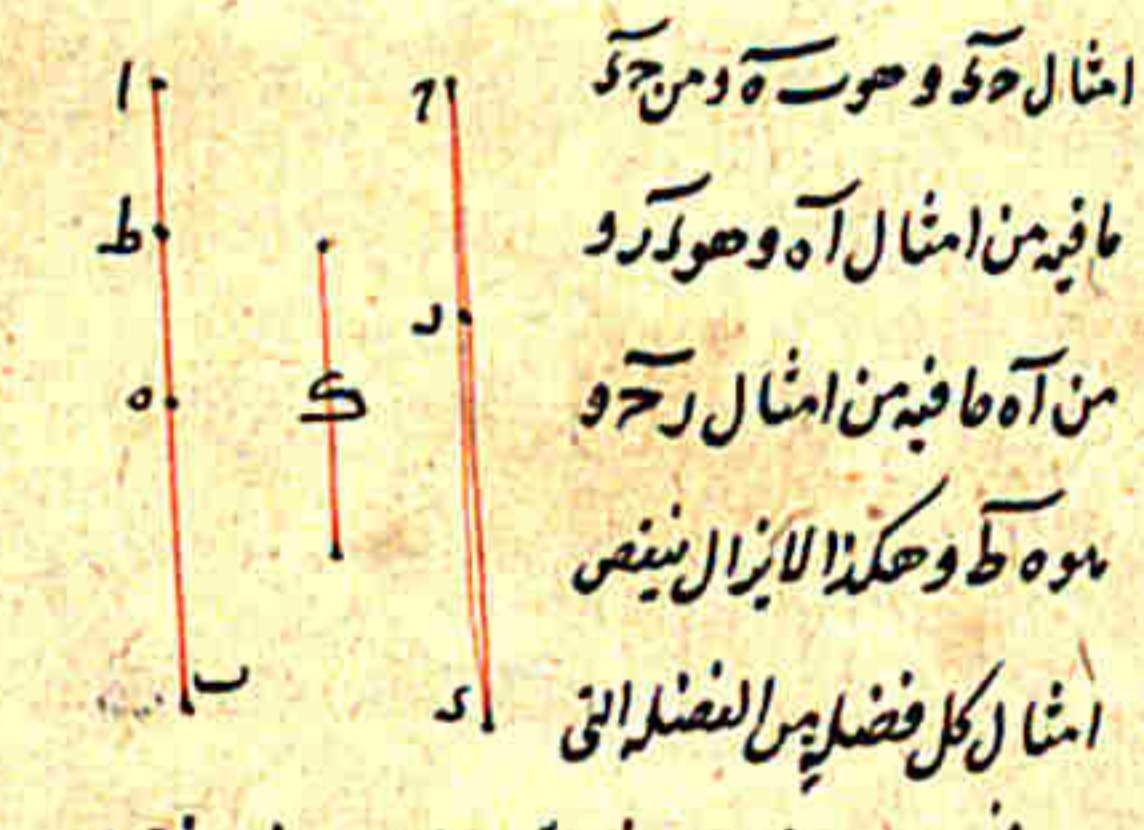 امثال حد وهو ب ه ومن حد
ما فيه من امثال اه وهو در و
من اه ما فيه من امثال رح و
هو ه ط وهكذا لا يزال ينقص
امثال كل فضلة من الفضلة التى
ا
ط
ه
ب
ى
ح
ر
د